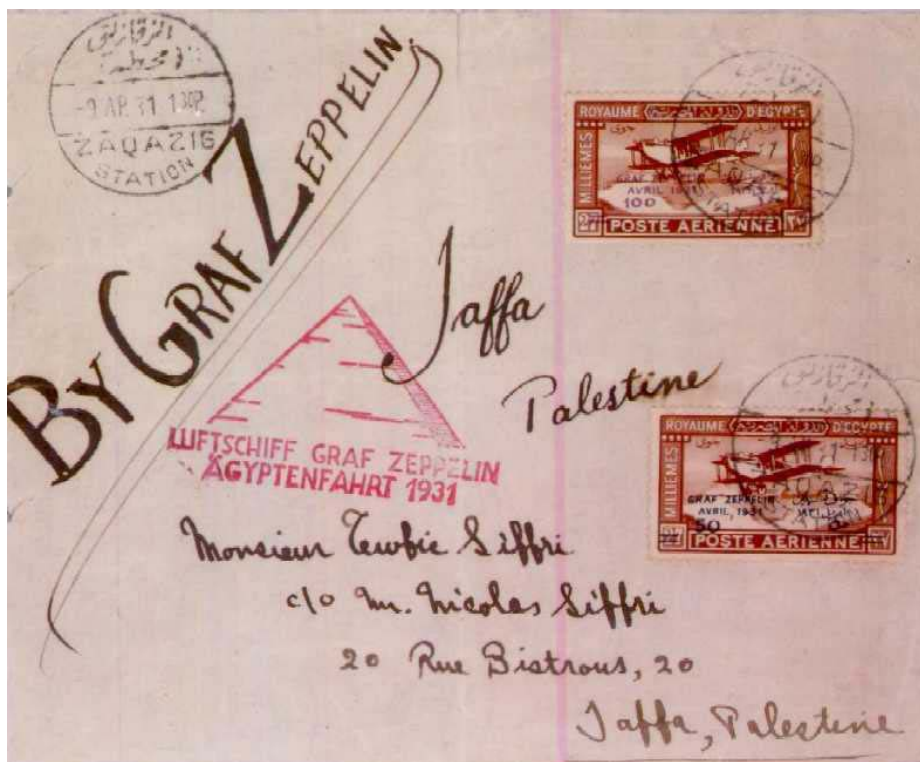 الزقازيق
محطة
-9 AP.31 1 30P
ZAQAZIG
STATION
BY GRAF ZEPPELIN.
ROYAUME D'EGYPTE
MILLIEMES
GRAF ZEPPELIN
AVRIL 1931
100
27 POSTE AÉRIENNE ٢٧
Jaffa
Palestine
LUFTSCHIFF GRAF ZEPPELIN
ÄGYPTENFAHRT 1931
الزقازيق
ROYAUME D'EGYPTE
MILLIEMES
GRAF ZEPPELIN
AVRIL, 1931
50
POSTE AÉRIENNE
Monsieur Tewfic Siffri
c/o Mr. Nicolas Siffri
20 Rue Bistrous, 20
Jaffa, Palestine